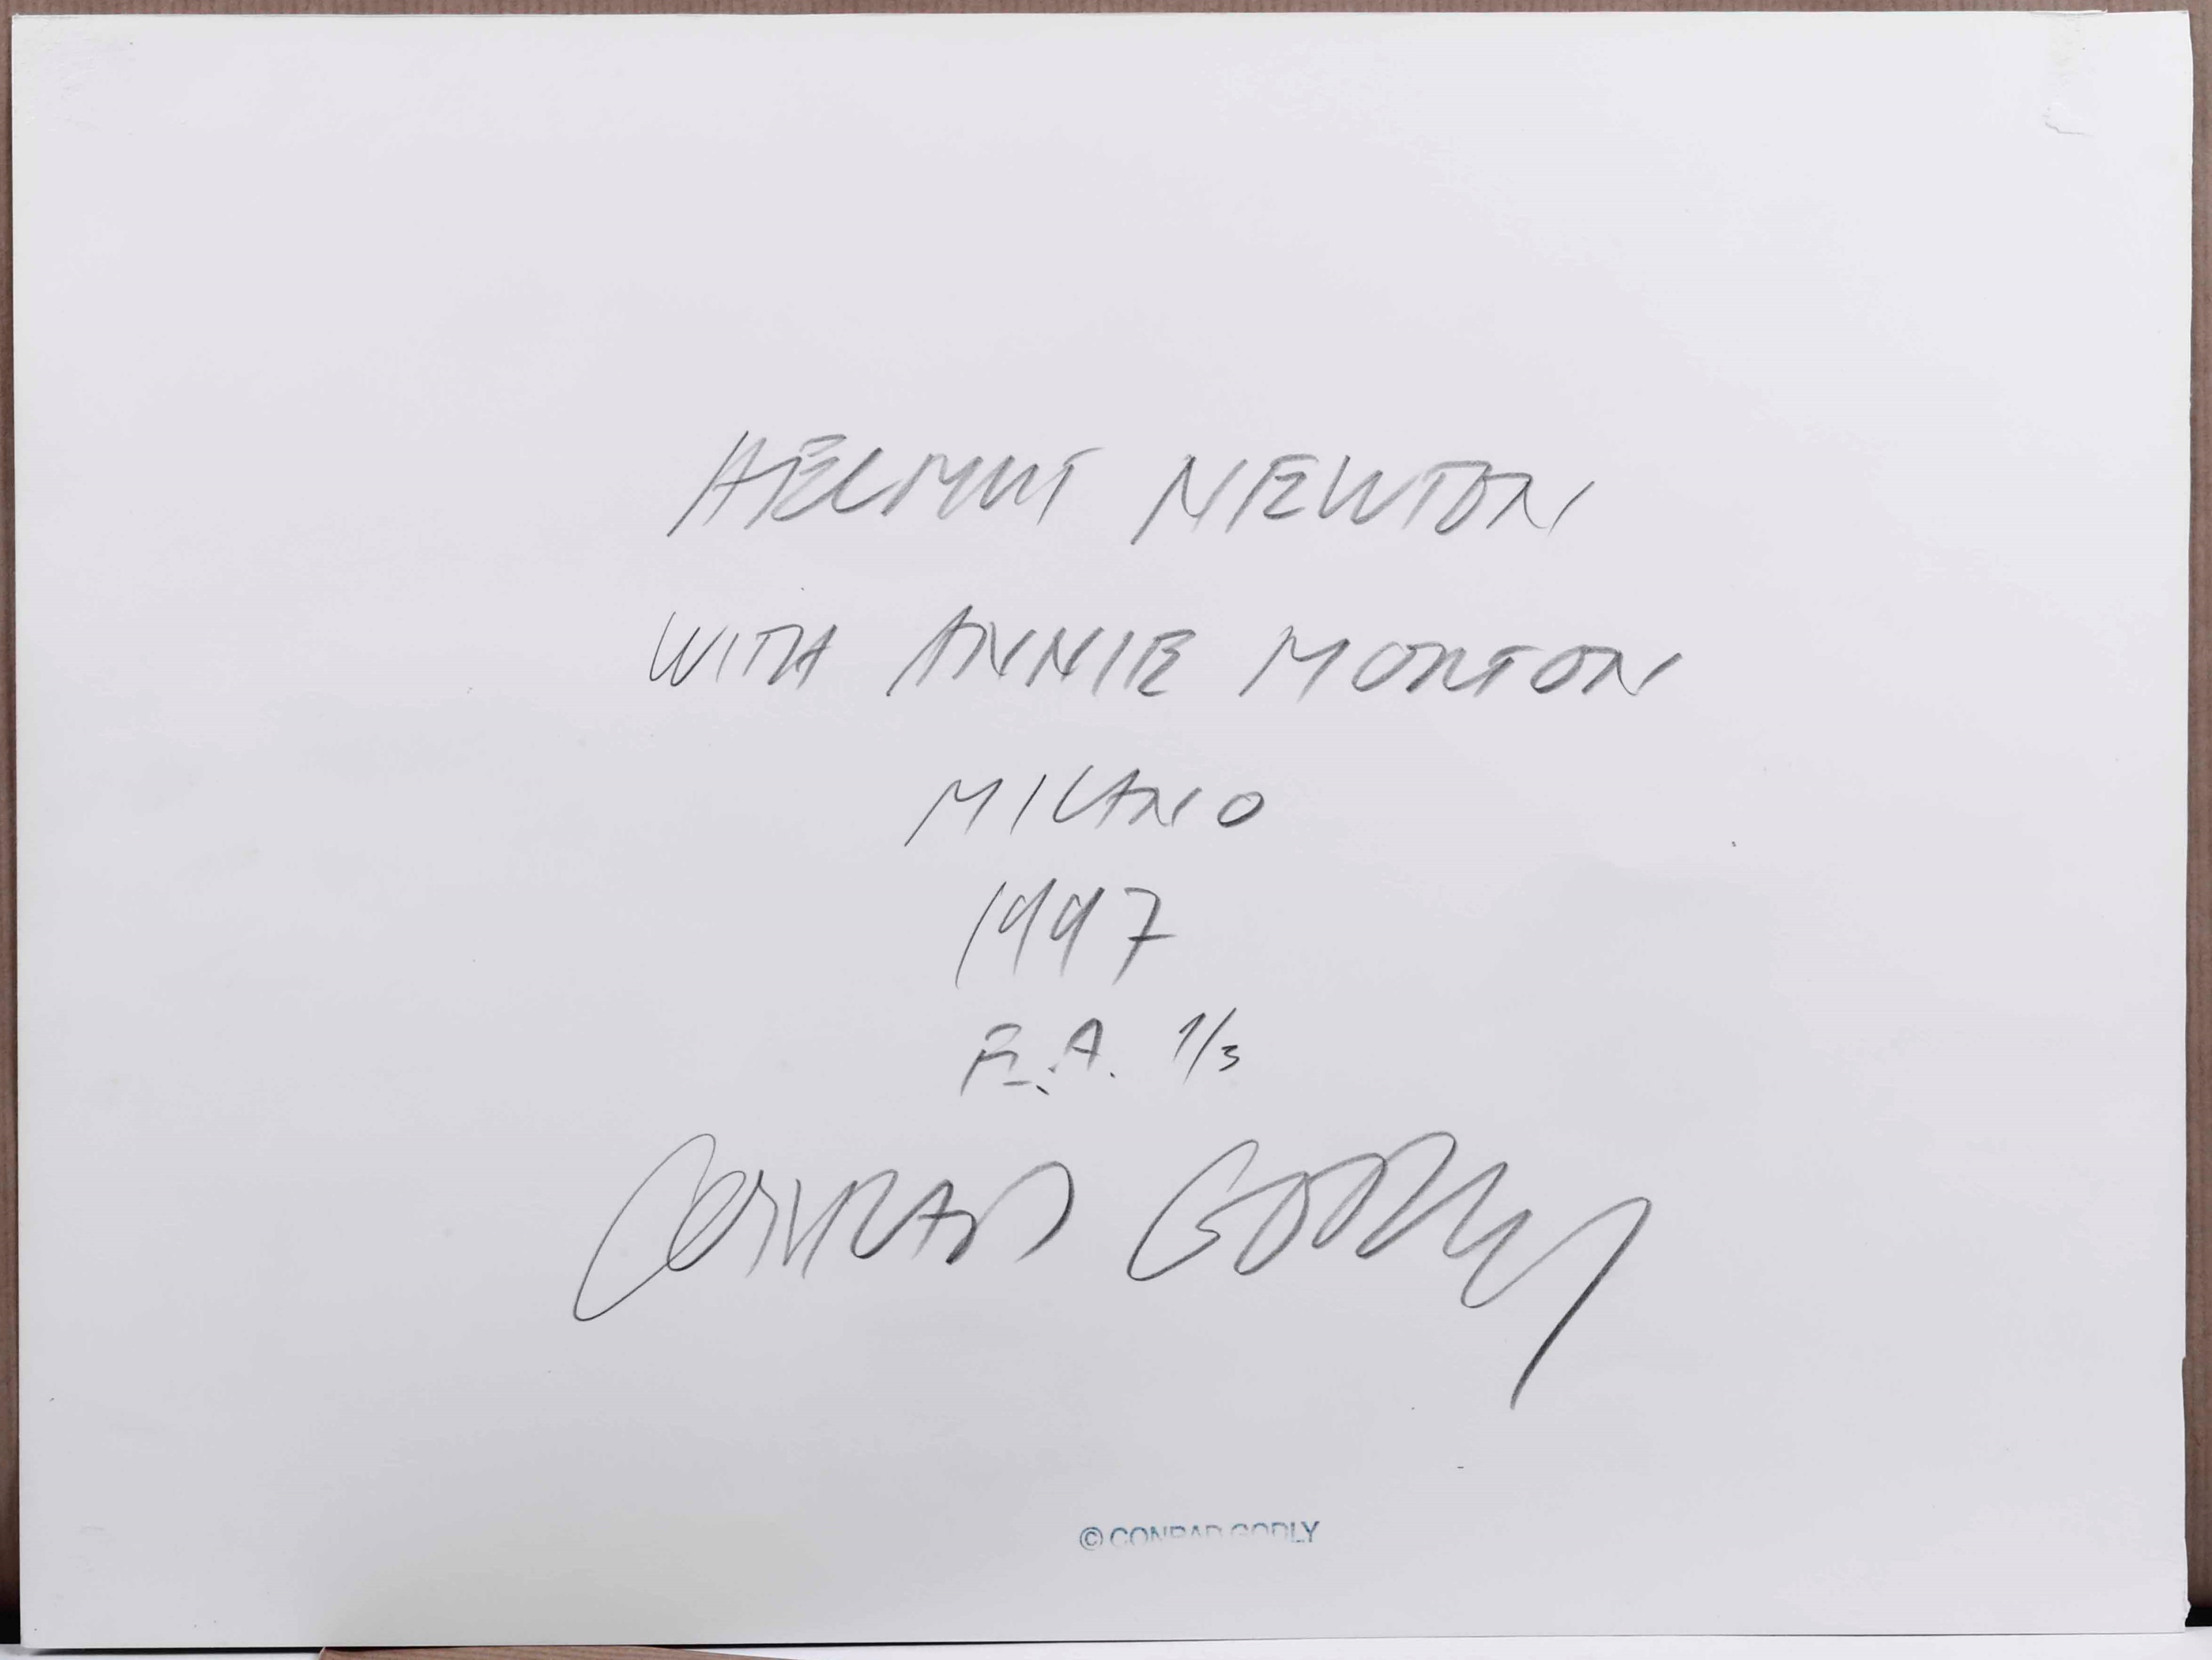 HELMUT NEWTON
WITH ANNIE MORTON
MILANO
1997
E.A. 1/3
CONRAD GODLY
© CONRAD GODLY